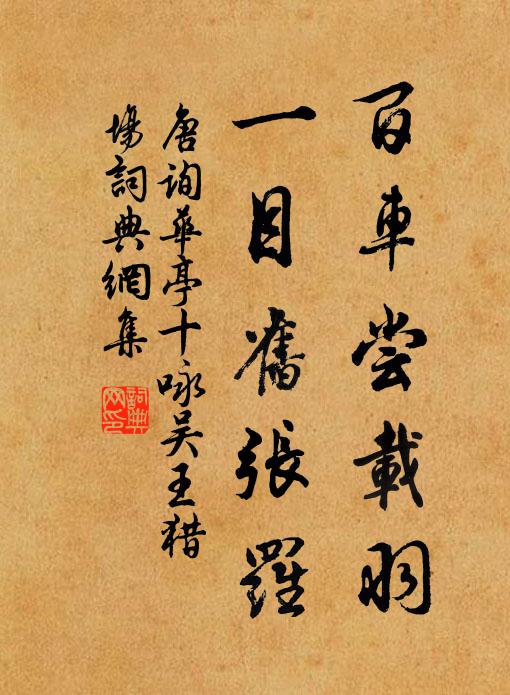 百車尝載羽
一目舊張羅
唐詢華亭十咏吴王猎
場詞典網集
詞典
网印